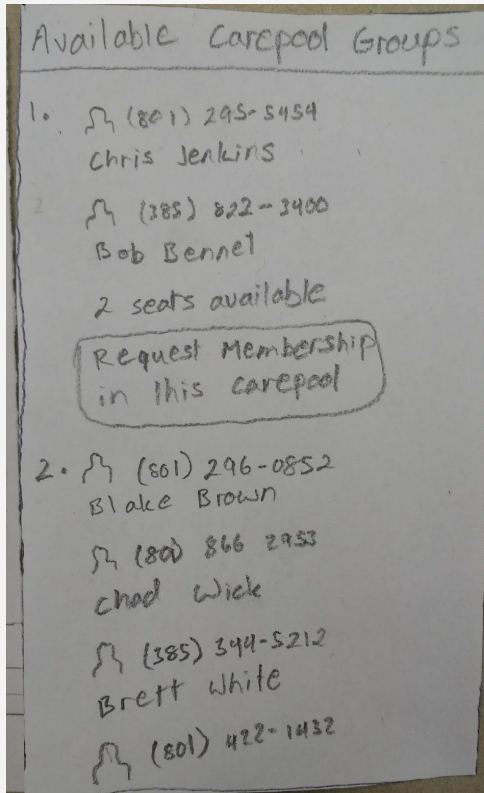 Available Carepool Groups
1. (801) 295-5454
Chris Jenkins
(385) 822-3400
Bob Bennet
2 seats available
Request Membership
in this carepool
2. (801) 296-0852
Blake Brown
(801) 866 2953
Chad Wick
(385) 344-5212
Brett White
(801) 422-1432